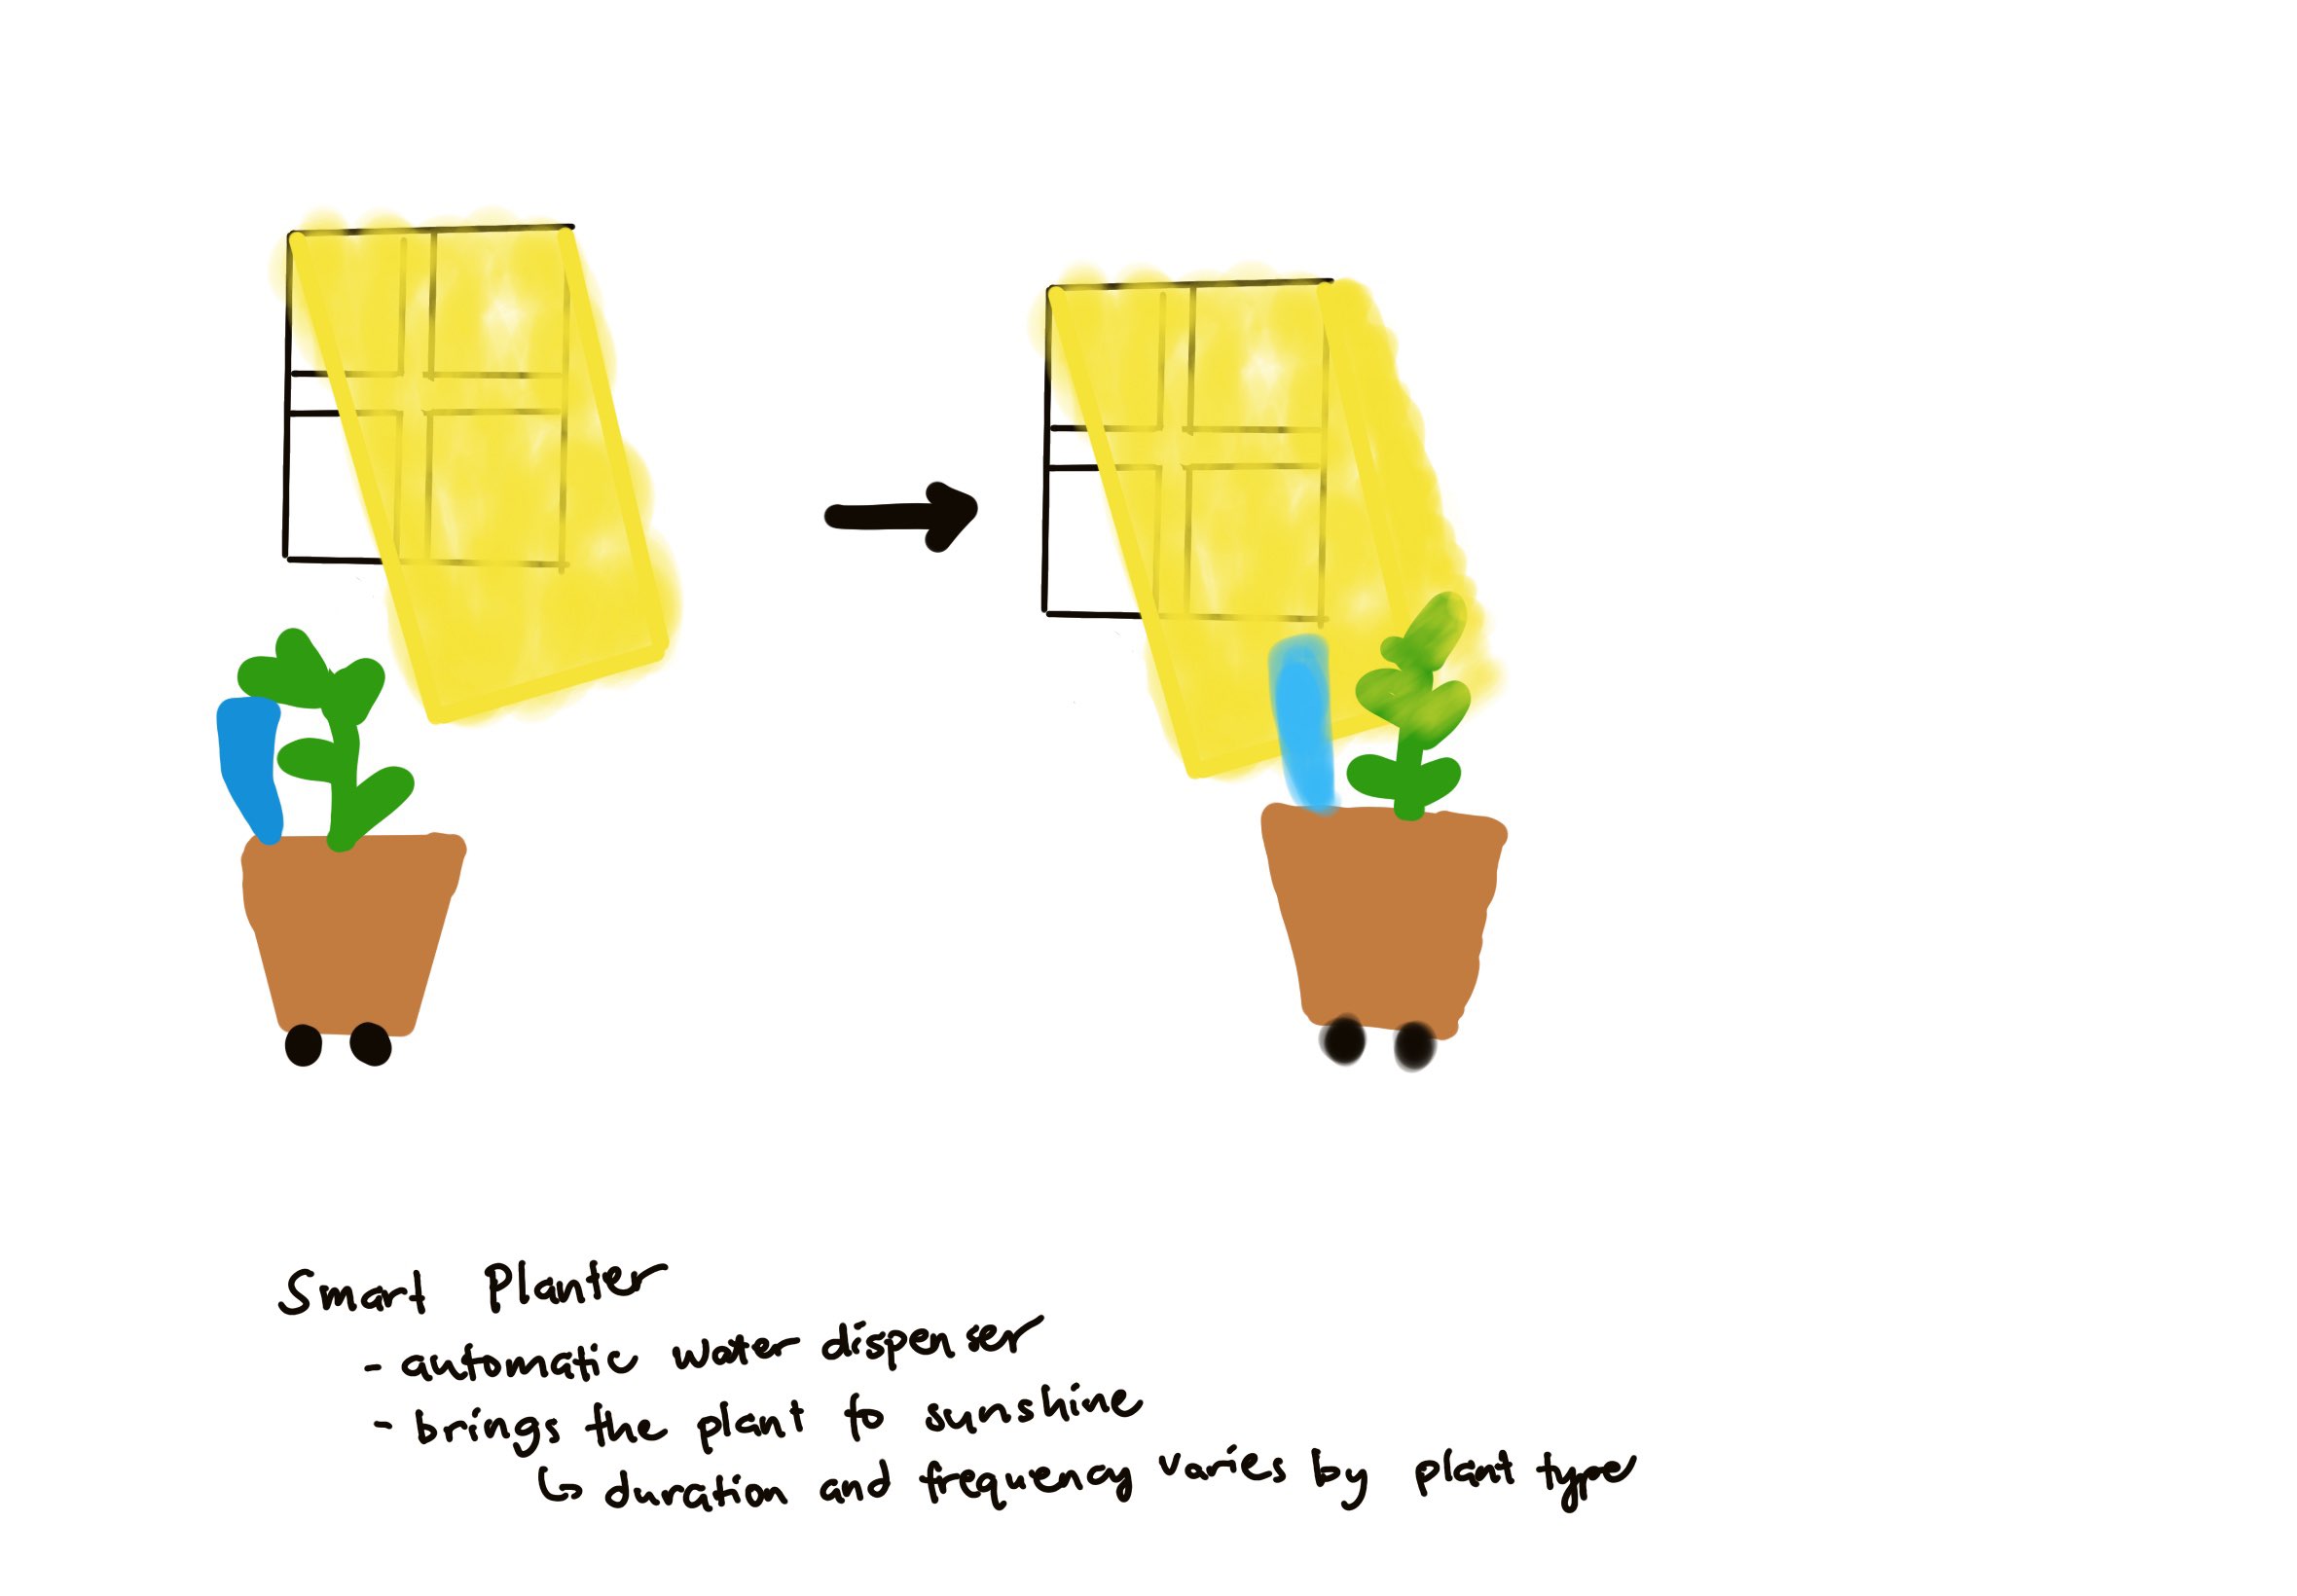 Smart Planter
- automatic water dispenser
- brings the plant to sunshine
↳ duration and frequency varies by plant type